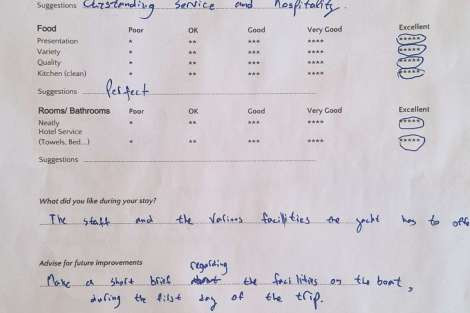 Suggestions Outstanding service and hospitality.
Food Poor OK Good Very Good Excellent
Presentation * ** *** **** *****
Variety * ** *** **** *****
Quality * ** *** **** *****
Kitchen (clean) * ** *** **** *****
Suggestions Perfect
Rooms/ Bathrooms Poor OK Good Very Good Excellent
Neatly * ** *** **** *****
Hotel Service
(Towels, Bed...) * ** *** **** *****
Suggestions
What did you like during your stay?
The staff and the various facilities the yacht has to offe
Advise for future improvements
regarding
Make a short brief the facilities on the boat,
during the first day of the trip.